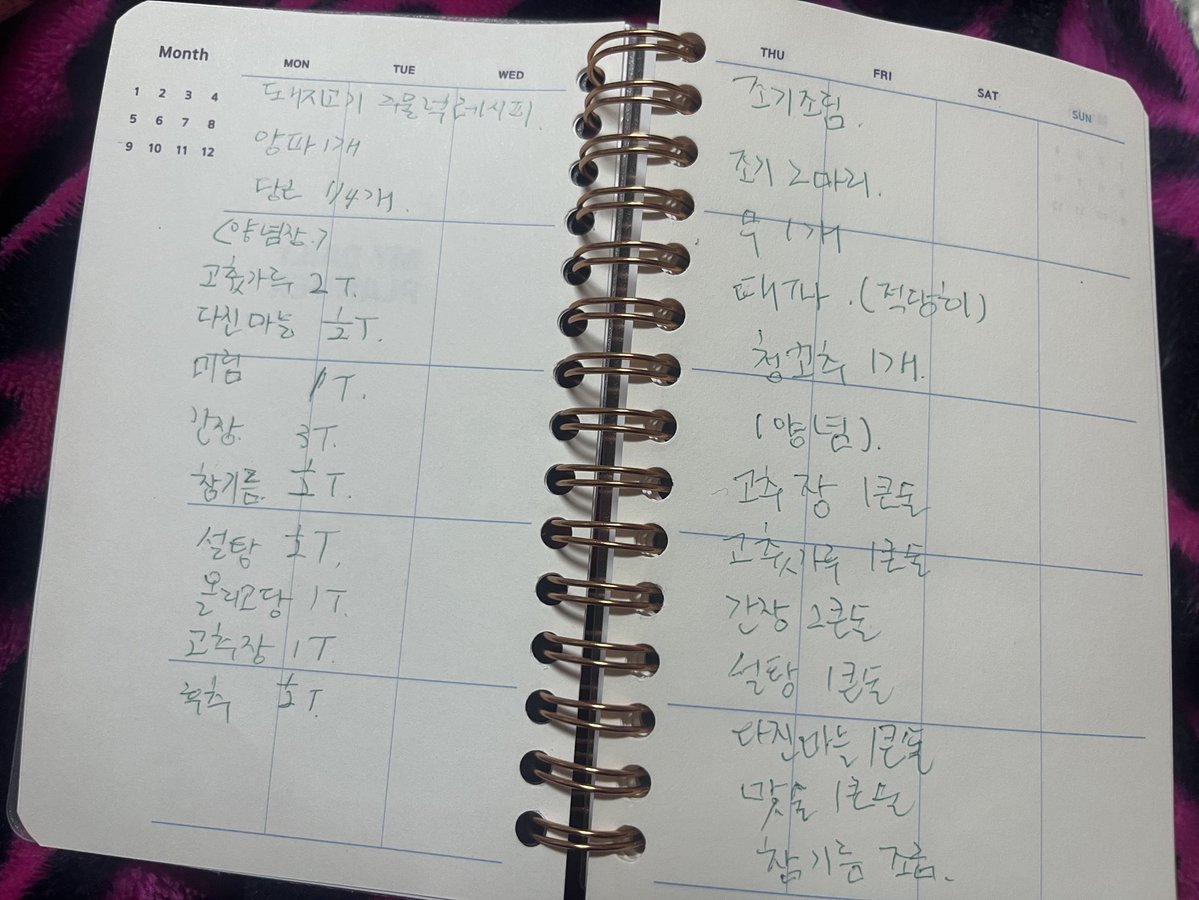 Month
1 2 3 4
5 6 7 8
9 10 11 12
MON TUE WED
돼지고기 주물럭 레시피.
양파 1개
당근 1/4개.
(양념장.)
고춧가루 2T.
다진마늘 1/2T.
미림 1T.
간장. 3T.
참기름. 1/2T.
설탕 1/2T.
올리고당 1T.
고추장 1T.
후추 1/2T.
THU FRI SAT SUN
조기조림.
조기 2마리.
무 1개
대파 .(적당히)
청고추 1개.
(양념).
고추장 1큰술
고춧가루 1큰술
간장 2큰술
설탕 1큰술
다진마늘 1큰술
맛술 1큰술
참기름 조금.